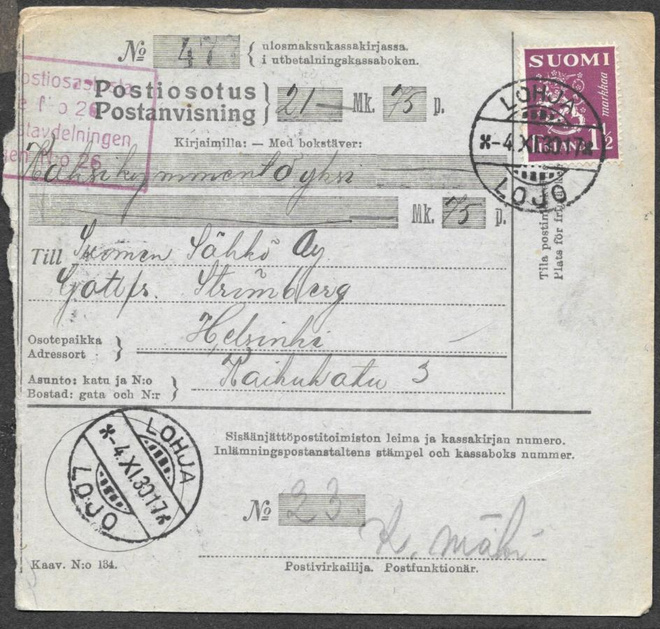 № 47 { ulosmaksukassakirjassa.
i utbetalningskassaboken.
Postiosotus
Postanvisning } 21 — Mk. 75 p.
Kirjaimilla: — Med bokstäver:
Kaksikymmentäyksi
Mk. 75 p.
Till Suomen Sähkö Oy
Gottfr. Strömberg
Osotepaikka
Adressort } Helsinki
Asunto: katu ja N:o
Bostad: gata och N:r } 3
SUOMI
markkaa
FINLAND 1½
LOHJA
-4.XI.30.17
LOJO
Tila postim
Plats för fr
ostiosasto
No 26
tavdelningen
N:o 26
LOHJA
-4.XI.30.17
LOJO
Sisäänjättöpostitoimiston leima ja kassakirjan numero.
Inlämningspostanstaltens stämpel och kassaboks nummer.
№ 23
Kaav. N:o 134.
Postivirkailija. Postfunktionär.